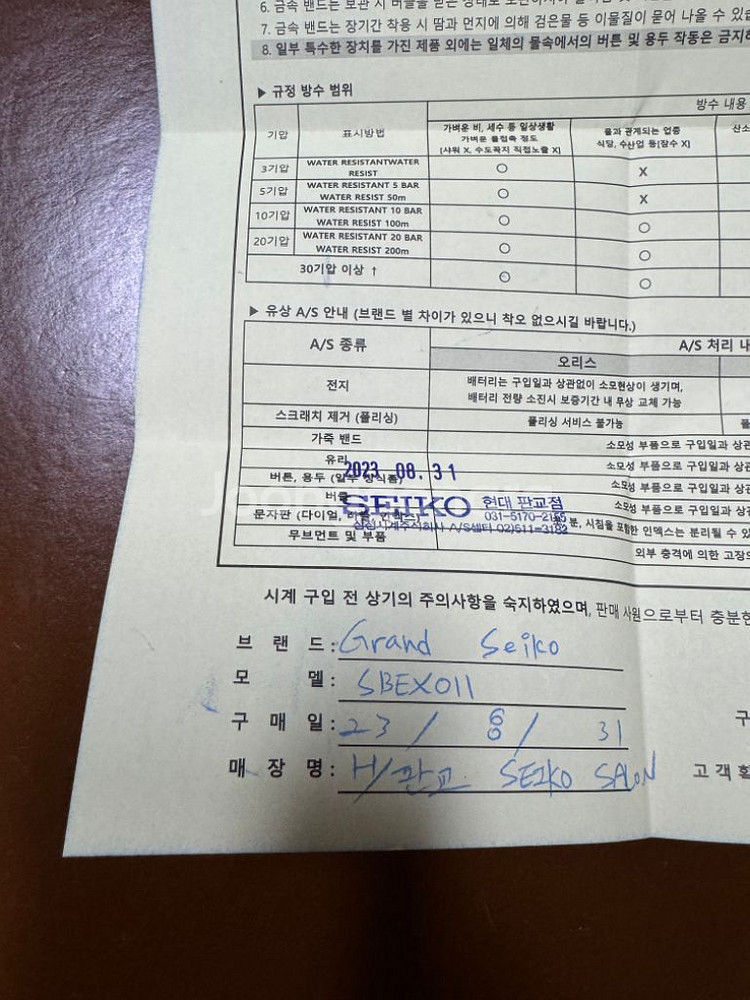 7. 금속 밴드는 장기간 착용 시 땀과 먼지에 의해 검은물 등 이물질이 묻어 나올 수
8. 일부 특수한 장치를 가진 제품 외에는 일체의 물속에서의 버튼 및 용두 작동은 금지
▶ 규정 방수 범위
방수 내용
기압 표시방법 가벼운 비, 세수 등 일상생활 물과 관계되는 업종
가벼운 물접촉 정도 식당, 수산업 등[잠수 X]
[샤워 X, 수도꼭지 직접노출 X]
3기압 WATER RESISTANTWATER RESIST ○ X
5기압 WATER RESISTANT 5 BAR WATER RESIST 50m ○ X
10기압 WATER RESISTANT 10 BAR WATER RESIST 100m ○ ○
20기압 WATER RESISTANT 20 BAR WATER RESIST 200m ○ ○
30기압 이상 ↑ ○ ○
▶ 유상 A/S 안내 (브랜드 별 차이가 있으니 착오 없으시길 바랍니다.)
A/S 종류 A/S 처리
오리스
전지 배터리는 구입일과 상관없이 소모현상이 생기며,
배터리 전량 소진시 보증기간 내 무상 교체 가능
스크래치 제거 (폴리싱) 폴리싱 서비스 불가능
가죽 밴드 소모성 부품으로 구입일과
유리 소모성 부품으로 구입일과
2023. 08. 31
버튼, 용두 소모성 부품으로 구입일과
버클 소모성 부품으로 구입일과
SEIKO 현대 판교점
031-5170-2165
문자판 (다이얼, 시침을 포함한 인덱스는 분리될 수
삼정시계주식회사 A/S센터 02)511-3182
무브먼트 및 부품 외부 충격에 의한
시계 구입 전 상기의 주의사항을 숙지하였으며, 판매 사원으로부터
브 랜 드 : Grand Seiko
모 델 : SBEX011
구 매 일 : 23 / 8 / 31
매 장 명 : H/판교 SEIKO SALON
고객